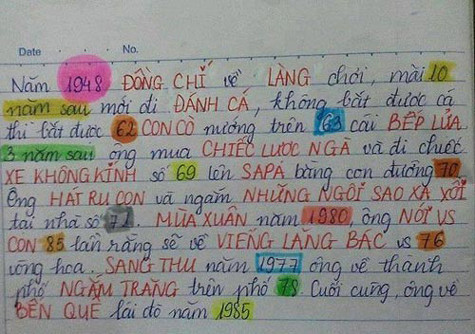 Date No.
Năm 1948 ĐỒNG CHÍ về LÀNG chơi, mãi 10
năm sau mới đi ĐÁNH CÁ, không bắt được cá
thì bắt được 62 CON CÒ nướng trên 63 cái BẾP LỬA
3 năm sau ông mua CHIẾC LƯỢC NGÀ và đi chiếc
XE KHÔNG KÍNH số 69 lên SAPA bằng con đường 70
Ông HÁT RU CON và ngắm NHỮNG NGÔI SAO XA XÔI
tại nhà số 71. MÙA XUÂN năm 1980, ông NÓI VS
CON 85 lần rằng sẽ về VIẾNG LĂNG BÁC vs 76
vòng hoa. SANG THU năm 1977 ông về thành
phố NGẮM TRĂNG trên phố 78. Cuối cùng, ông về
BẾN QUÊ lái đò năm 1985